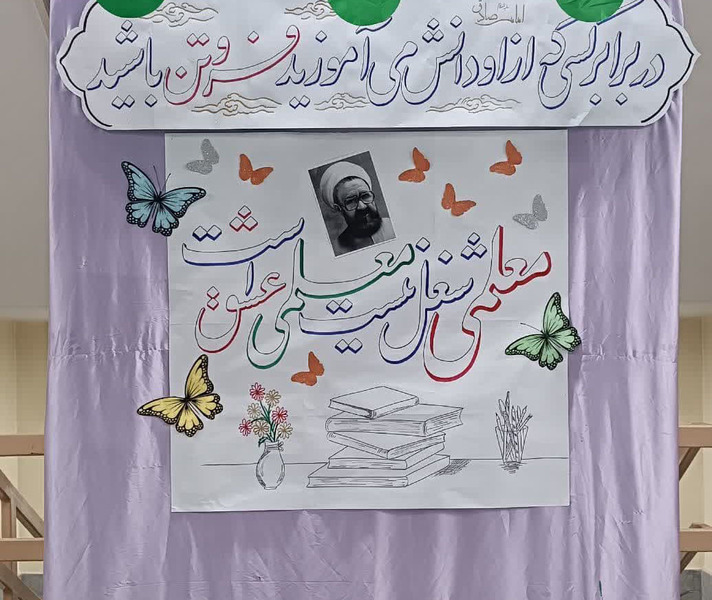 امام صادق
در برابر کسی که از او دانش می آموزید فروتن باشید
معلمی شغل نیست معلمی عشق است